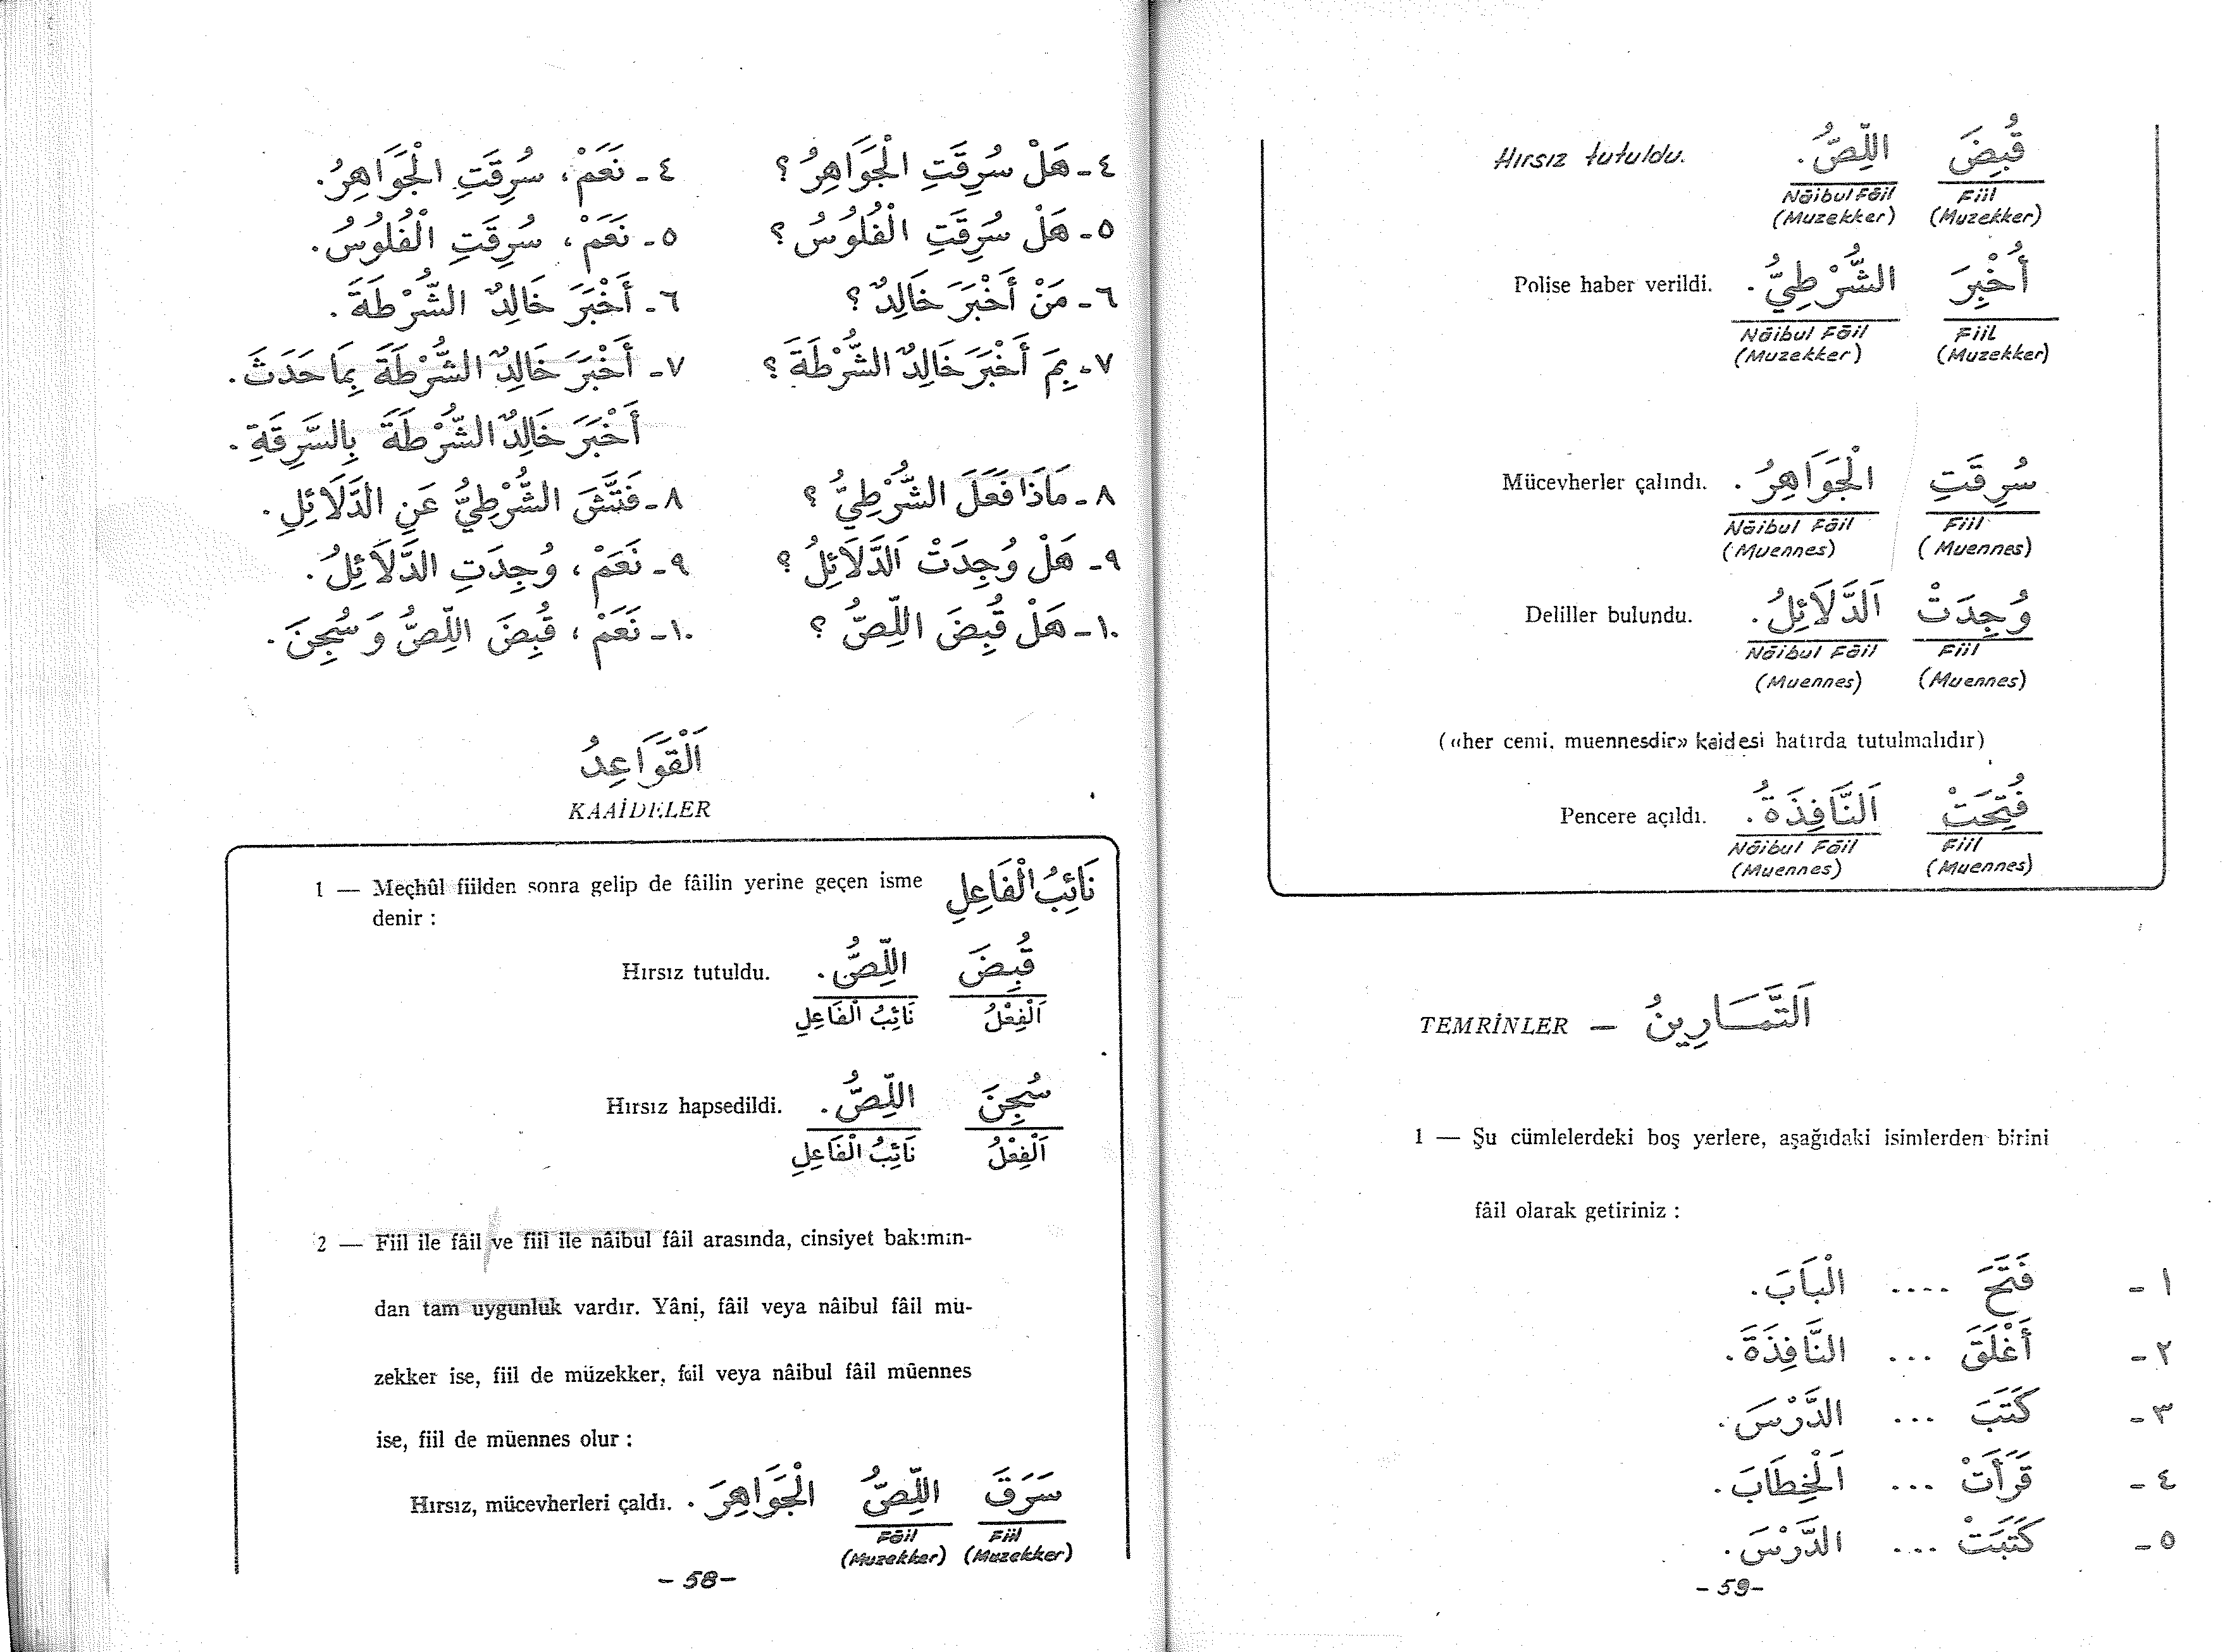 ٤ـ هَلْ سُرِقَتِ الْجَوَاهِرُ ؟ ٤ـ نَعَمْ، سُرِقَتِ الْجَوَاهِرُ.
٥ـ هَلْ سُرِقَتِ الْفُلُوسُ ؟ ٥ـ نَعَمْ، سُرِقَتِ الْفُلُوسُ.
٦ـ مَنْ أَخْبَرَ خَالِدٌ ؟ ٦ـ أَخْبَرَ خَالِدٌ الشُّرْطَةَ.
٧ـ بِمَ أَخْبَرَ خَالِدٌ الشُّرْطَةَ ؟ ٧ـ أَخْبَرَ خَالِدٌ الشُّرْطَةَ بِمَا حَدَثَ.
أَخْبَرَ خَالِدٌ الشُّرْطَةَ بِالسَّرِقَةِ.
٨ـ مَاذَا فَعَلَ الشُّرْطِيُّ ؟ ٨ـ فَتَّشَ الشُّرْطِيُّ عَنِ الدَّلَائِلِ.
٩ـ هَلْ وُجِدَتْ اَلدَّلَائِلُ ؟ ٩ـ نَعَمْ، وُجِدَتِ الدَّلَائِلُ.
١٠ـ هَلْ قُبِضَ اللِّصُّ ؟ ١٠ـ نَعَمْ، قُبِضَ اللِّصُّ وَ سُجِنَ.
اَلْقَوَاعِدُ
KAAİDELER
1 — Meçhûl fiilden sonra gelip de fâilin yerine geçen isme نَائِبُ الْفَاعِلِ
denir :
Hırsız tutuldu. قُبِضَ اللِّصُّ.
اَلْفِعْلُ نَائِبُ الْفَاعِلِ
Hırsız hapsedildi. سُجِنَ اللِّصُّ.
اَلْفِعْلُ نَائِبُ الْفَاعِلِ
2 — Fiil ile fâil ve fiil ile nâibul fâil arasında, cinsiyet bakımın-
dan tam uygunluk vardır. Yâni, fâil veya nâibul fâil mü-
zekker ise, fiil de müzekker, fail veya nâibul fâil müennes
ise, fiil de müennes olur :
Hırsız, mücevherleri çaldı. سَرَقَ اللِّصُّ الْجَوَاهِرَ.
Fâil Fiil
(Muzekker) (Muzekker)
- 58 -
Hırsız tutuldu. قُبِضَ اللِّصُّ.
Nâibul Fâil Fiil
(Muzekker) (Muzekker)
Polise haber verildi. أُخْبِرَ الشُّرْطِيُّ.
Nâibul Fâil Fiil
(Muzekker) (Muzekker)
Mücevherler çalındı. سُرِقَتِ الْجَوَاهِرُ.
Nâibul Fâil Fiil
(Muennes) (Muennes)
Deliller bulundu. وُجِدَتْ اَلدَّلَائِلُ.
Nâibul Fâil Fiil
(Muennes) (Muennes)
(«her cemi, muennesdir» kaidesi hatırda tutulmalıdır)
Pencere açıldı. فُتِحَتْ اَلنَّافِذَةُ.
Nâibul Fâil Fiil
(Muennes) (Muennes)
TEMRİNLER — اَلتَّمَارِينُ
1 — Şu cümlelerdeki boş yerlere, aşağıdaki isimlerden birini
fâil olarak getiriniz :
١ـ فَتَحَ .... الْبَابَ.
٢ـ أَغْلَقَ ... النَّافِذَةَ.
٣ـ كَتَبَ ... الدَّرْسَ.
٤ـ قَرَأَتْ ... اَلْخِطَابَ.
٥ـ كَتَبَتْ ... الدَّرْسَ.
- 59 -